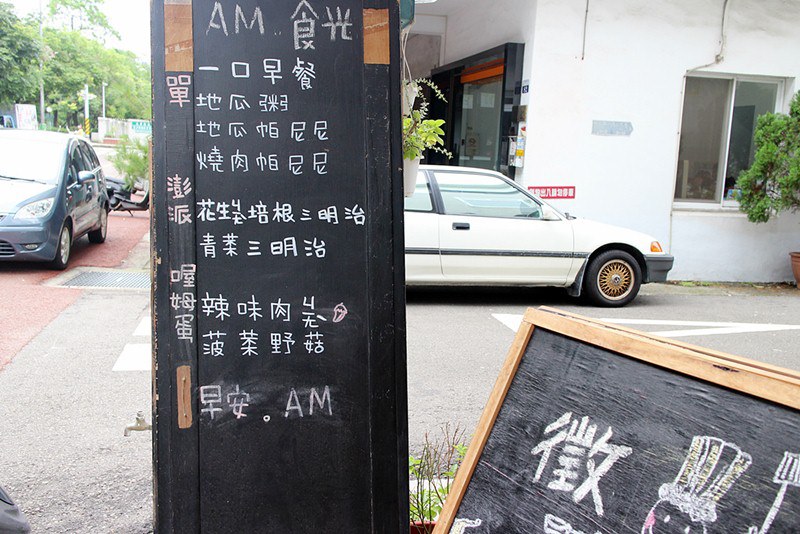 AM 食光
單
一口早餐
地瓜粥
地瓜帕尼尼
燒肉帕尼尼
澎派
花生培根三明治
青菜三明治
喔姆蛋
辣味肉
菠菜野菇
早安。AM
徵